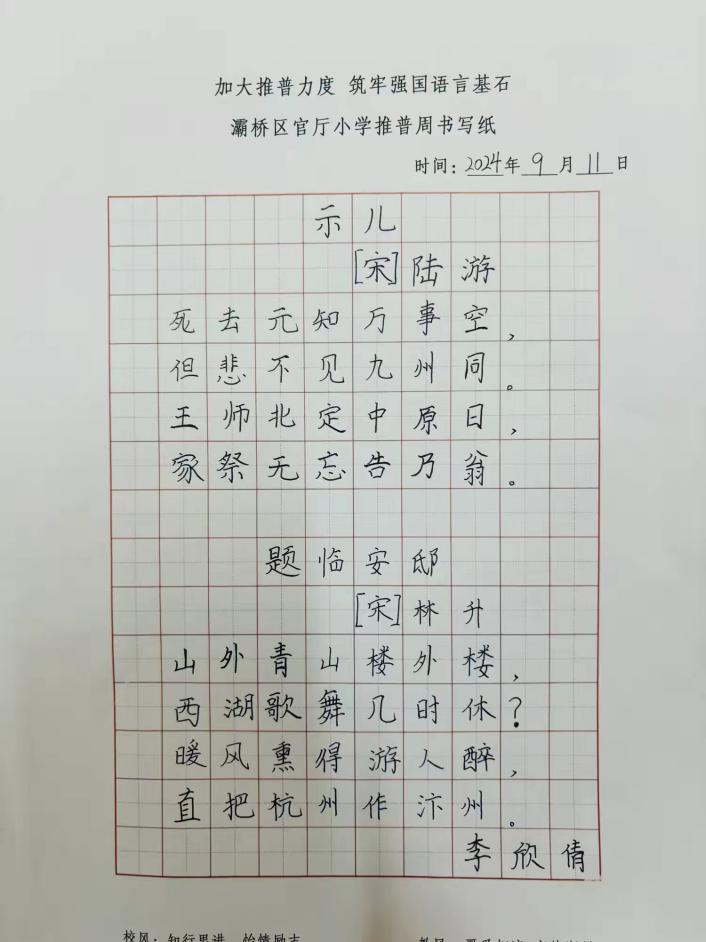 加大推普力度 筑牢强国语言基石
灞桥区官厅小学推普周书写纸
时间：2024年9月11日
示儿
[宋]陆游
死去元知万事空，
但悲不见九州同。
王师北定中原日，
家祭无忘告乃翁。
题临安邸
[宋]林升
山外青山楼外楼，
西湖歌舞几时休？
暖风熏得游人醉，
直把杭州作汴州。
李欣倩
校风：知行里进 怡情励志